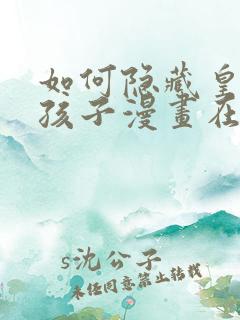 如何隐藏皇
孩子漫畫在
s沈公子
未经同意禁止转载